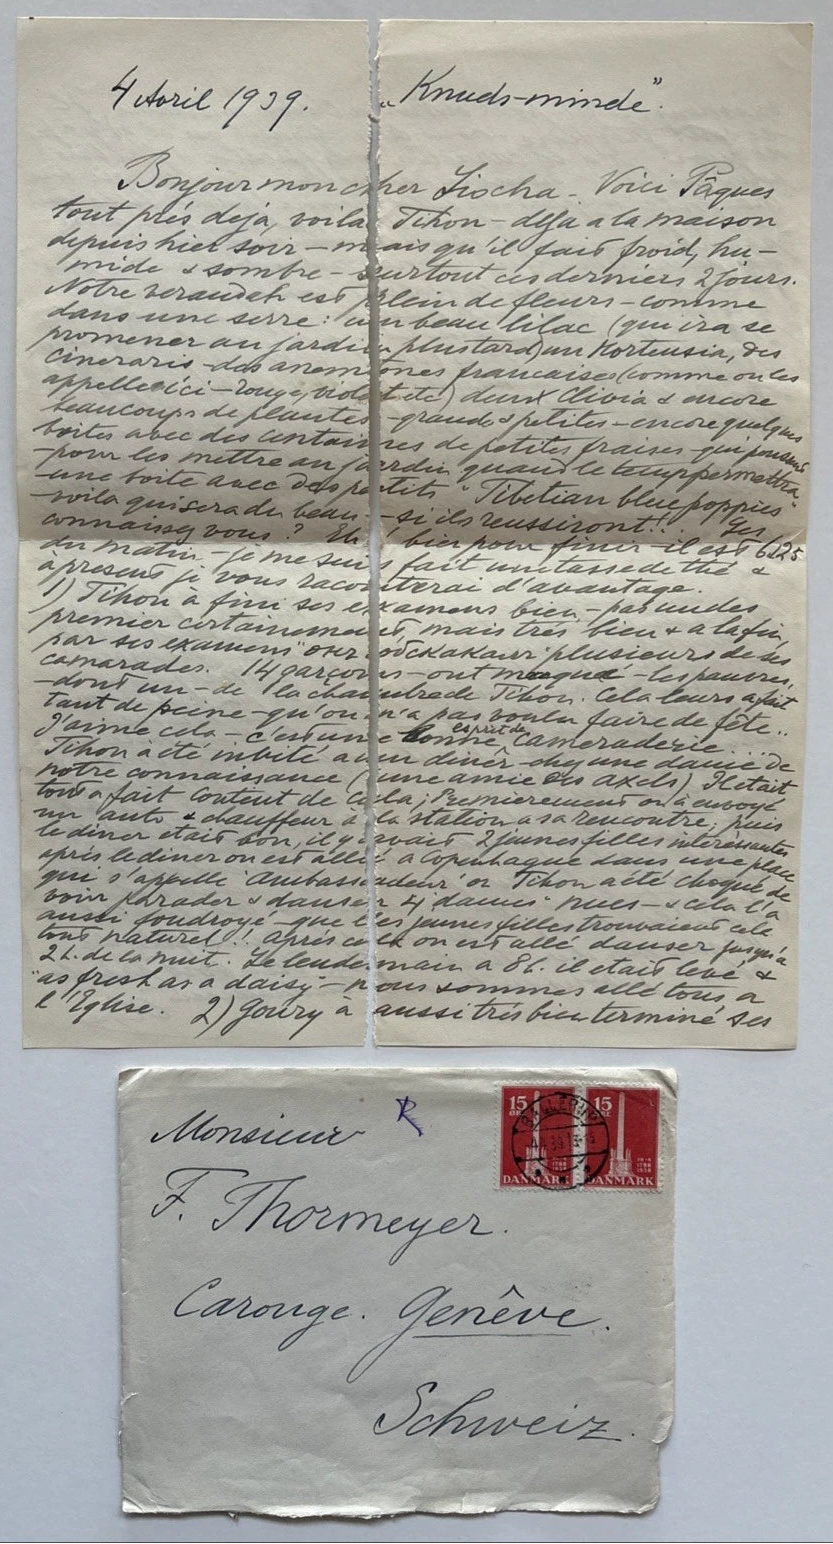 4 Avril 1939. „Knuds-minde".
Bonjour mon cher Siocha - Voici Pâques
tout prés dejà, voila Tihon - déja a la maison
depuis hier soir - mais qu'il fait froid, hu-
mide & sombre - surtout ces derniers 2 jours.
Notre verandah est plein de fleurs - comme
dans une serre: un beau lilac (qui ira se
promener au jardin plus tard) un Hortensia, des
cineraris - des anemones francaises (comme on les
appelle ici - rouge, violet etc) deux Clivia & encore
beaucoups de plantes - grands & petites - encore quelques
boites avec des centaines de petites fraises - qui poussent
- pour les mettre au jardin quand le temp permettra
- une boite avec des petits "Tibetian blue poppies"
- voila qui sera du beau - si ils reussiront!! Les
connaissez vous? Eh bien pour finir - il est 6.25
du matin - je me suis fait un tasse de thé &
à present je vous raconterai d'avantage.
1) Tihon à fini ses examens bien, - pas un des
premier certainement, mais trés bien & a la fin,
par ses examens plusieurs de ses
camarades. 14 garçons - ont - les pauvres,
- dont un - de la chambre de Tihon. Cela leurs a fait
tant de peine - qu'on n'a pas voulu faire de fête..
J'aime cela - c'est une bonne esprit de cameraderie....
Tihon a été inbité a un dinêr chez une dame de
notre connaissance (une amie des Axels) Il etait
tout a fait content de cela; Premièrement on à envoyé
un auto & chauffeur à la station a sa rencontre, puis
le diner etait bon, il y avait 2 jeunes filles intéressantes
aprés le diner on est allé a Copenhague dans une place
qui s'appelle "Ambassadeur" or Tihon a été choqué de
voir parader & danser 4 "dames" nues - & cela l'a
aussi foudroyé - que les jeunes filles trouvaient cela
tout naturel!! Aprés cela on est allé danser jusqu'a
2h. de la nuit. Le lendemain a 8h. il etait levé &
"as fresh as a daisy - nous sommes allé tous a
l'Eglise. 2) Goury à aussi trés bien terminé ses
Monsieur R
F. Thormeyer.
Carouge. Genêve.
Schweiz.
15 ØRE 15
BALLERUP
DANMARK DANMARK
1788
1938